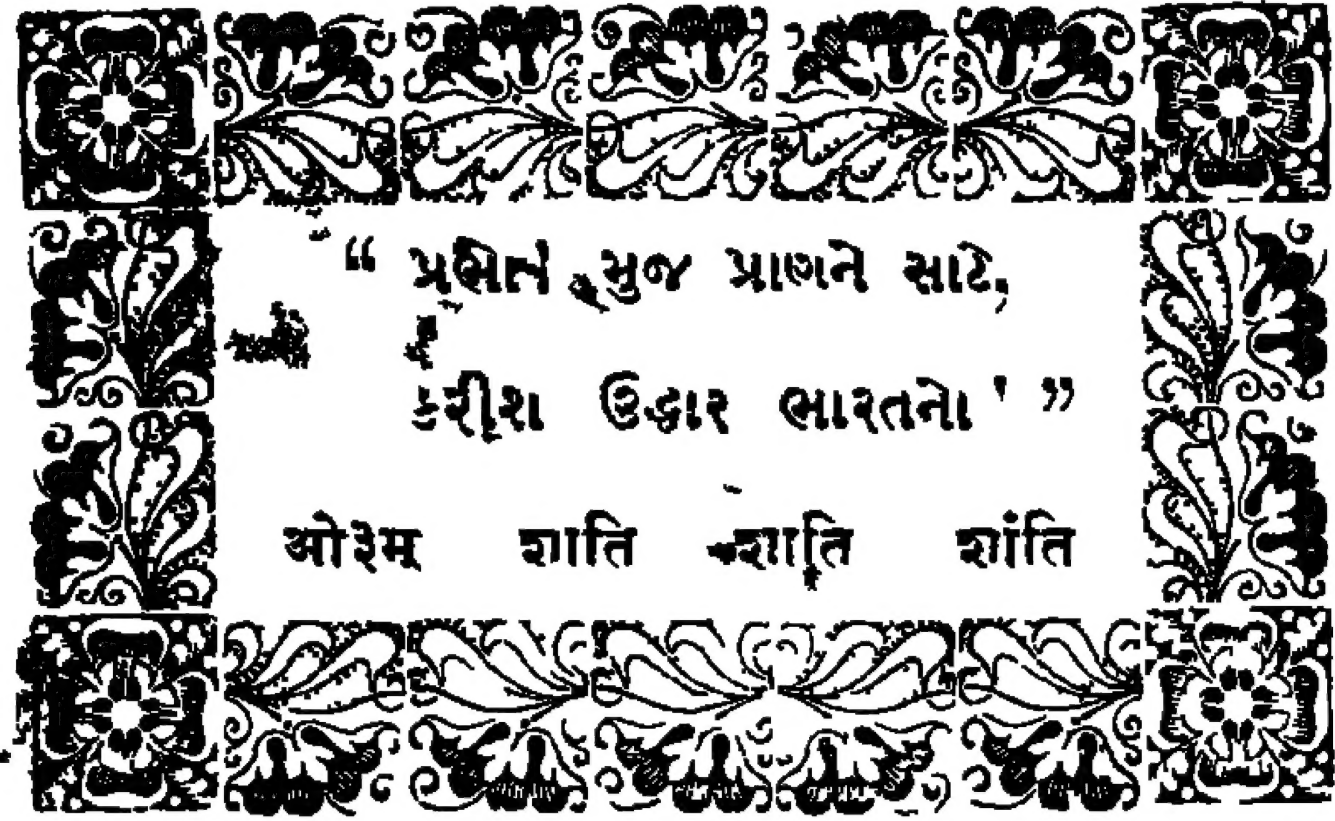 “ પ્રભાતે મુજ પ્રાણને સાટે,
કરીશ ઉદ્ધાર ભારતનો ' ”
ओ३म् शाति शाति शांति